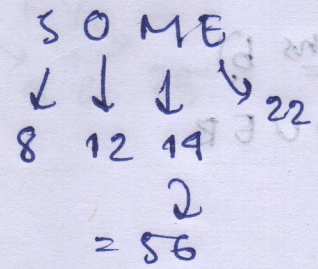 SOME
22
8 12 14
2
= 56